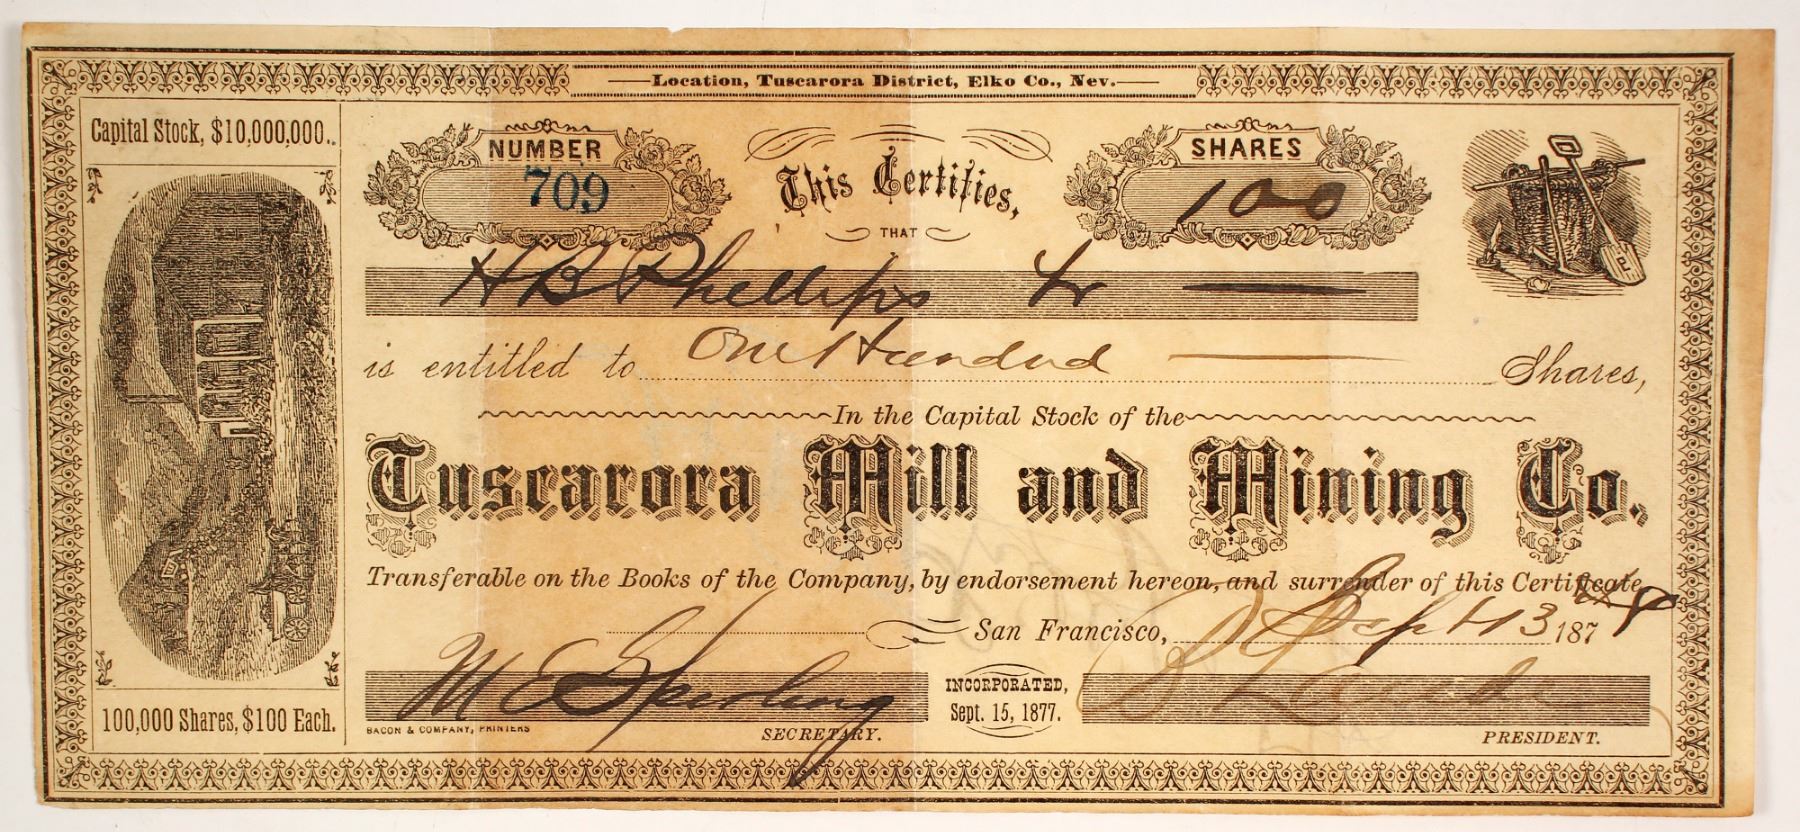 Location, Tuscarora District, Elko Co., Nev.
Capital Stock, $10,000,000.
NUMBER
709
This Certifies,
THAT
SHARES
100
H B Phillips Tr
is entitled to One Hundred Shares,
In the Capital Stock of the
Tuscarora Mill and Mining Co.
Transferable on the Books of the Company, by endorsement hereon, and surrender of this Certificate
San Francisco, Sept 13 187
M E Sperling
SECRETARY.
INCORPORATED,
Sept. 15, 1877.
PRESIDENT.
BACON & COMPANY, PRINTERS
100,000 Shares, $100 Each.